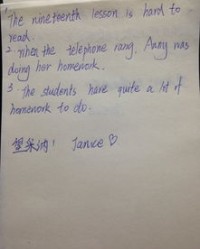 The nineteenth lesson is hard to
read.
2. When the telephone rang, Anny was
doing her homework.
3 The students have quite a lot of
homework to do.
望采纳! Janice ♡